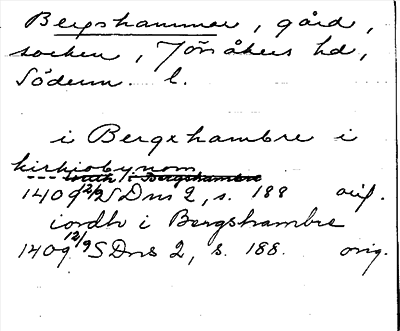 Bergshammar, gård,
socken, Jönåkers hd,
Söderm. l.
i Bergxhambre i
kirkiobynom
1409 12/9 SDns 2, s. 188 orig.
iordh i Bergshambre
1409 12/9 SDns 2, s. 188. orig.